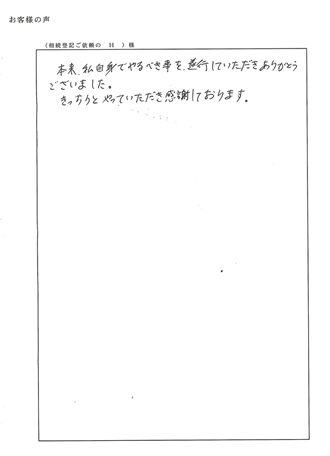 お客様の声
(相続登記ご依頼の H )様
本来、私自身でやるべき事を、遂行していただきありがとう
ございました。
きっちりとやっていただき感謝しております。